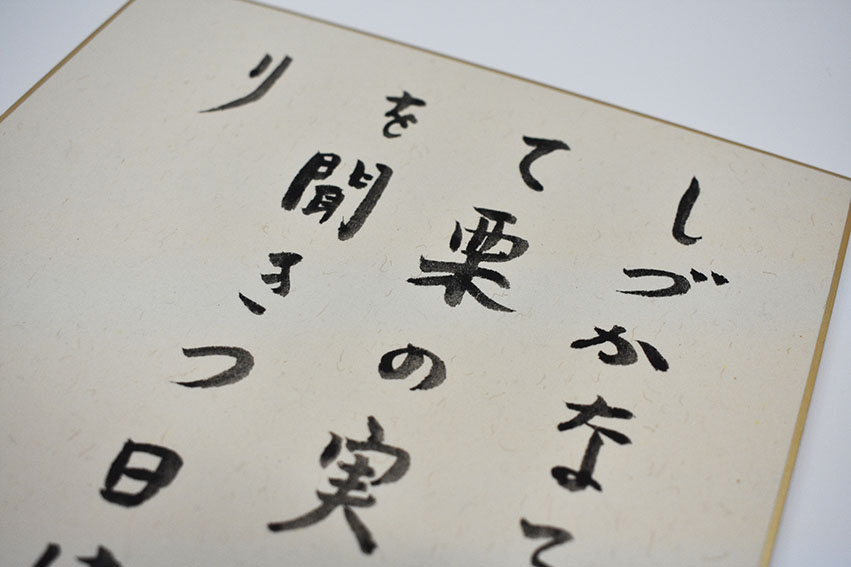 しづかな
て栗の実
を聞きつ日
り